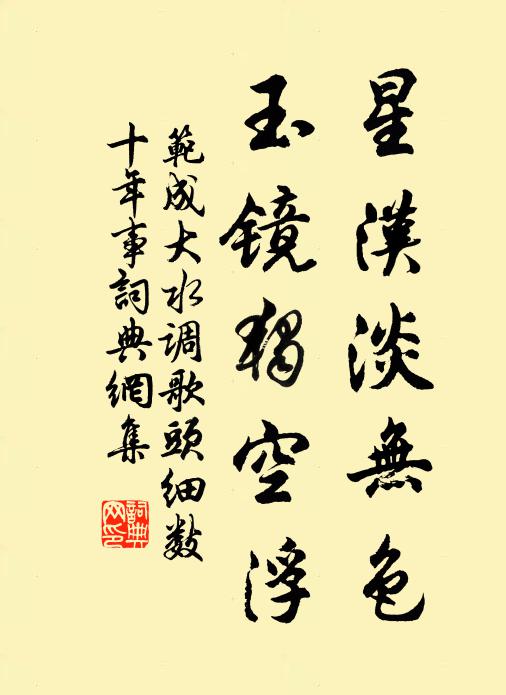 星漢淡無色
玉镜獨空浮
範成大水调歌頭细数
十年事詞典網集
詞典网印